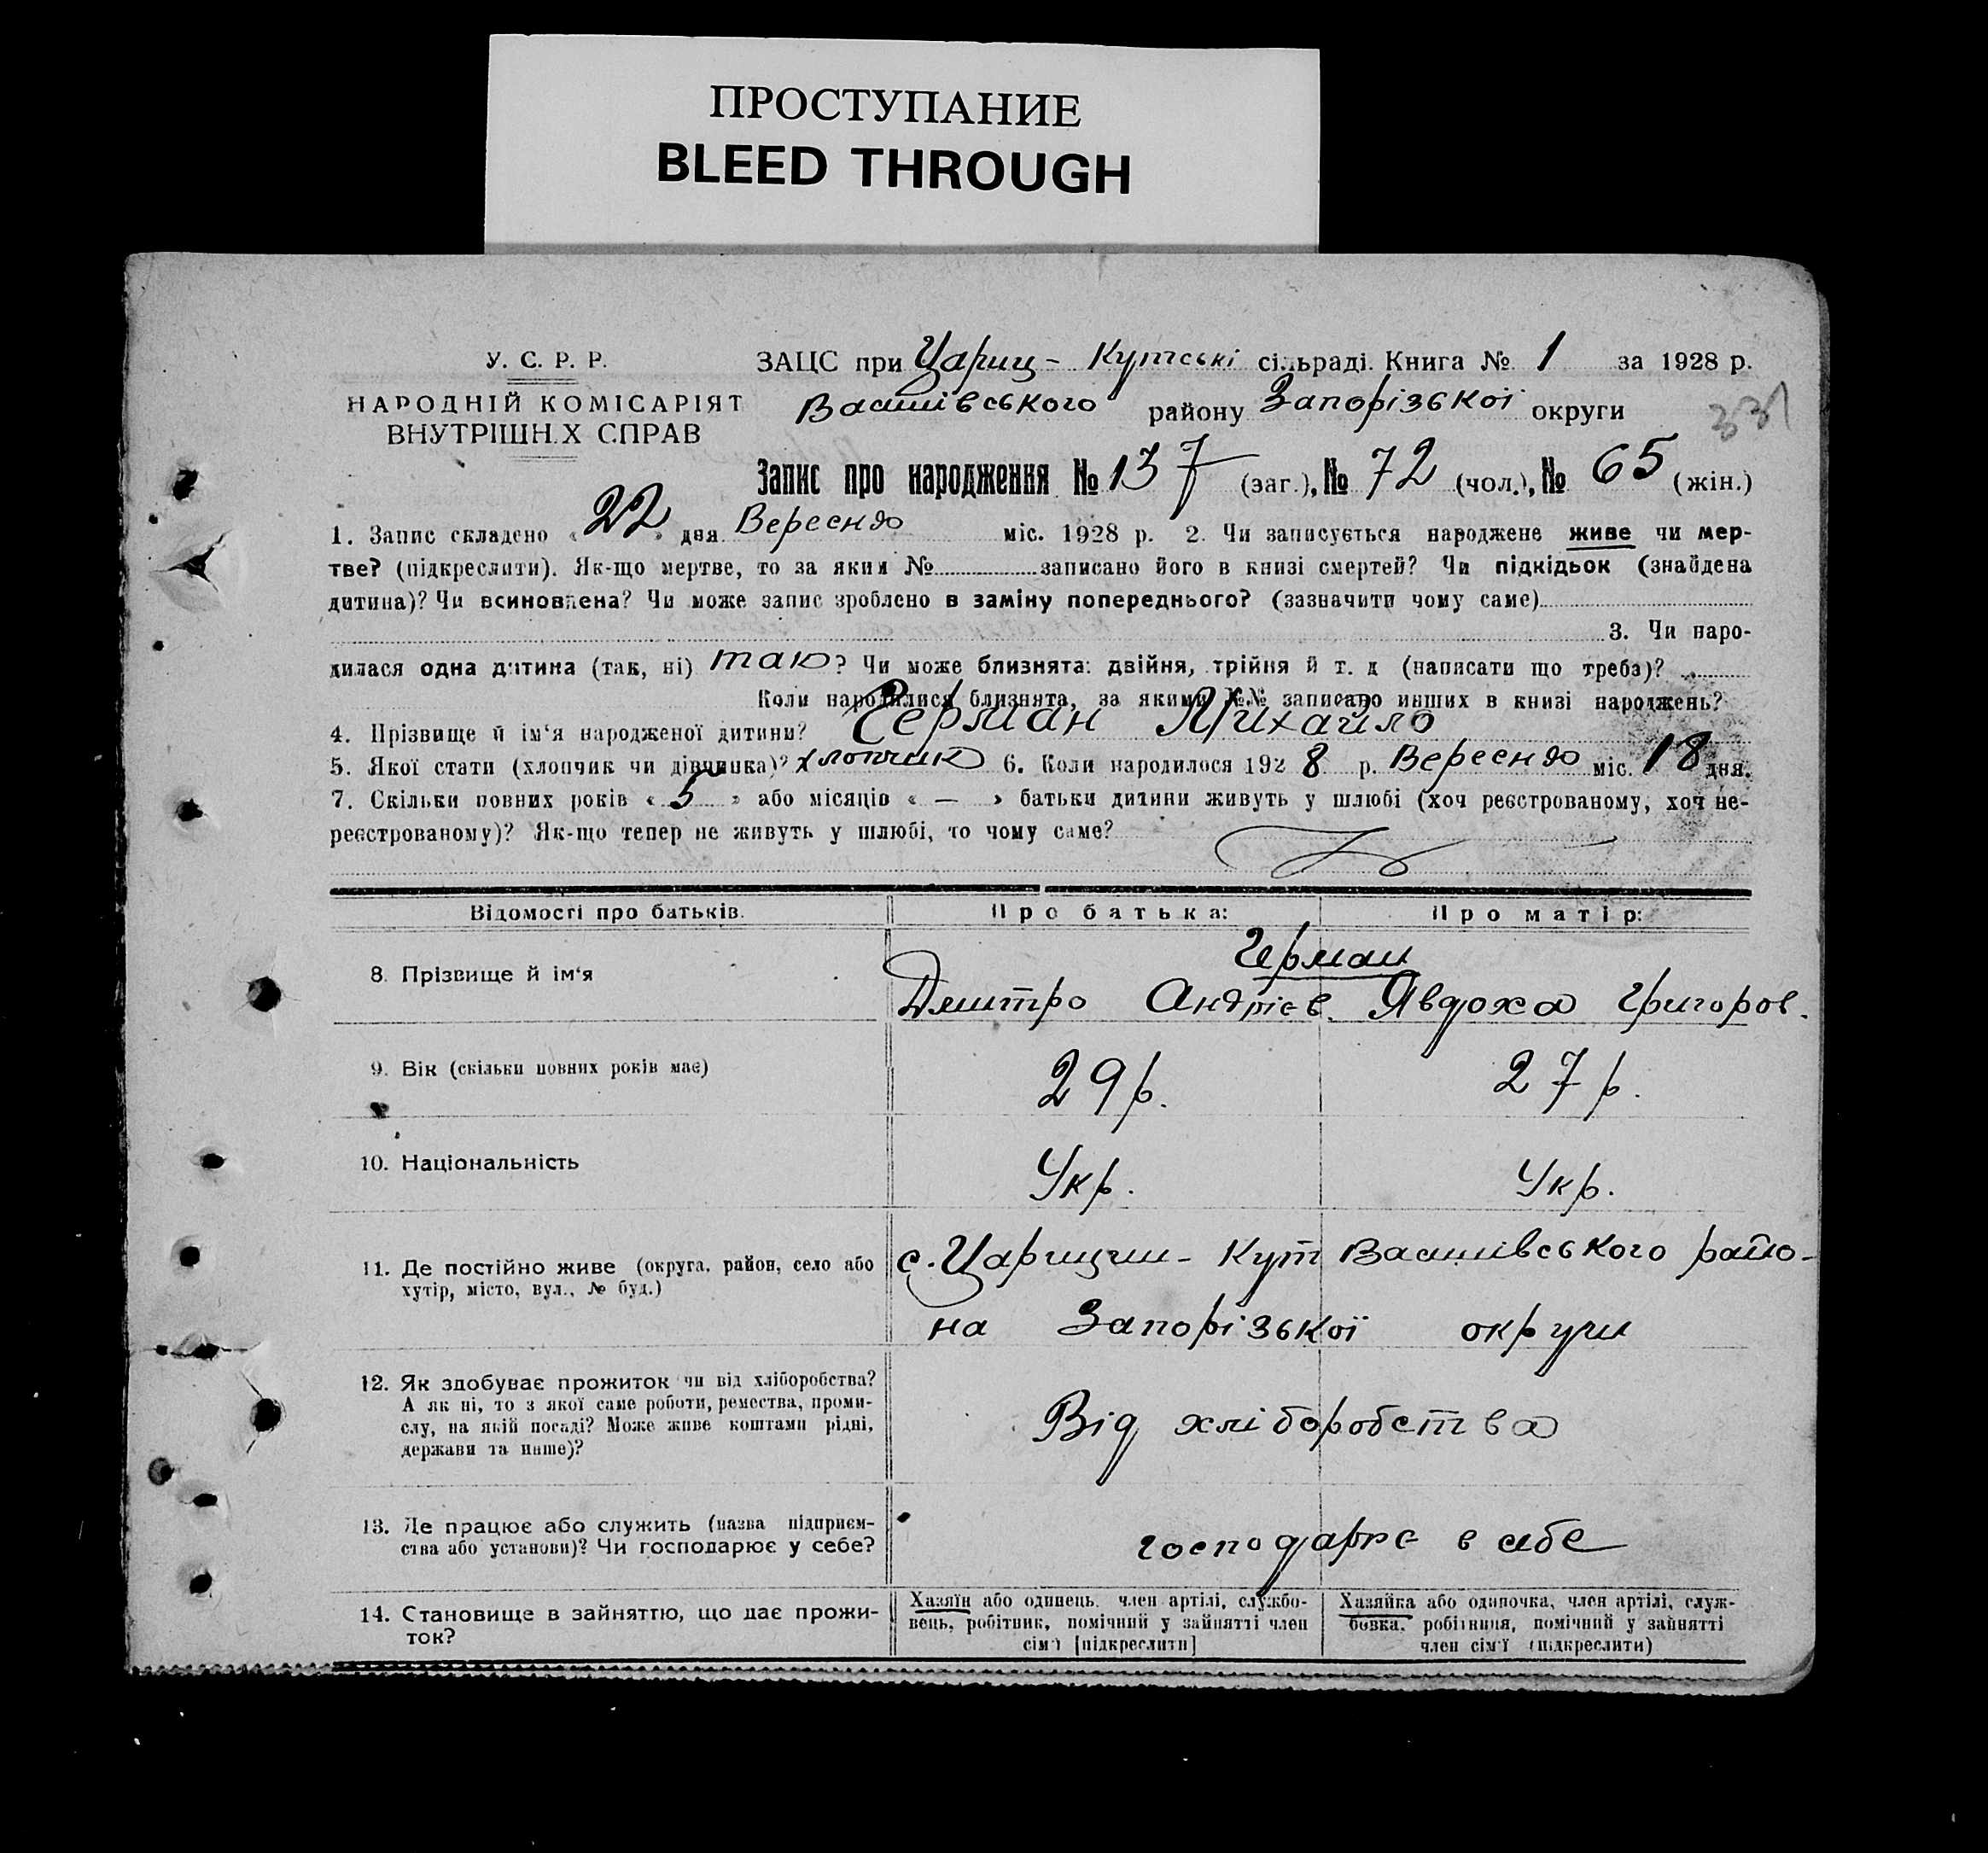 ПРОСТУПАНИЕ
BLEED THROUGH
У. С. Р. Р.
НАРОДНІЙ КОМІСАРІЯТ
ВНУТРІШН.Х СПРАВ
ЗАЦС при Цариц - Кутські сільраді. Книга № 1 за 1928 р.
Василівського району Запорізької округи
331
Запис про народження № 137 (заг.), № 72 (чол.), № 65 (жін.)
1. Запис складено « 22 » дня Вересня міс. 1928 р. 2. Чи записується народжене живе чи мер-
тве? (підкреслити). Як-що мертве, то за яким № записано його в книзі смертей? Чи підкідьок (знайдена
дитина)? Чи всиновлена? Чи може запис зроблено в заміну попереднього? (зазначити чому саме)
3. Чи наро-
дилася одна дитина (так, ні) так ? Чи може близнята: двійня, трійня й т. д (написати що треба)?
Коли народилися близнята, за якими №№ записано инших в книзі народжень?
4. Прізвище й ім‘я народженої дитини? Герман Михайло
5. Якої стати (хлопчик чи дівчинка)? хлопчик 6. Коли народилося 192 8 р. Вересня міс. 18 дня.
7. Скільки повних років « 5 » або місяців « — » батьки дитини живуть у шлюбі (хоч реєстрованому, хоч не-
реєстрованому)? Як-що тепер не живуть у шлюбі, то чому саме?
Відомості про батьків. Про батька: Про матір:
Герман
8. Прізвище й ім‘я Дмитро Андрієв. Явдоха Григоров.
9. Вік (скільки повних років має) 29 р. 27 р.
10. Національність Укр. Укр.
11. Де постійно живе (округа, район, село або
хутір, місто, вул., № буд.)
с. Царицин - Кут Василівського райо-
на Запорізької округи
12. Як здобуває прожиток чи від хліборобства?
А як ні, то з якої саме роботи, ремества, проми-
слу, на якій посаді? Може живе коштами рідні,
держави та инше)?
Від хліборобства
13. Де працює або служить (назва підприєм-
ства або установи)? Чи господарює у себе?
господарює в себе
14. Становище в зайняттю, що дає прожи-
ток?
Хазяїн або одинець, член артілі, службо-
вець, робітник, помічний у зайнятті член
сім‘ї [підкреслити]
Хазяйка або одиночка, член артілі, служ-
бовка, робітниця, помічний у зайнятті
член сім‘ї (підкреслити)